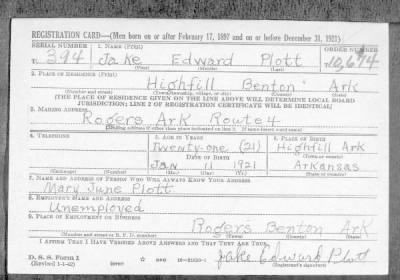 REGISTRATION CARD—(Men born on or after February 17, 1897 and on or before December 31, 1921)
SERIAL NUMBER 1. NAME (Print) ORDER NUMBER
T. 394 Jake Edward Plott 10,674
(First) (Middle) (Last)
2. PLACE OF RESIDENCE (Print)
Highfill Benton Ark
(Number and street) (Town, township, village, or city) (County) (State)
(THE PLACE OF RESIDENCE GIVEN ON THE LINE ABOVE WILL DETERMINE LOCAL BOARD
JURISDICTION; LINE 2 OF REGISTRATION CERTIFICATE WILL BE IDENTICAL)
3. MAILING ADDRESS
Rogers Ark Route 4
(Mailing address if other than place indicated on line 2. If same insert word same)
4. TELEPHONE 5. AGE IN YEARS 6. PLACE OF BIRTH
Twenty-one (21) Highfill Ark
DATE OF BIRTH (Town or county)
Jan 11 1921 Arkansas
(Exchange) (Number) (Mo.) (Day) (Yr.) (State or country)
7. NAME AND ADDRESS OF PERSON WHO WILL ALWAYS KNOW YOUR ADDRESS
Mary June Plott
8. EMPLOYER'S NAME AND ADDRESS
Unemployed
9. PLACE OF EMPLOYMENT OR BUSINESS
Rogers Benton Ark
(Number and street or R. F. D. number) (Town) (County) (State)
I AFFIRM THAT I HAVE VERIFIED ABOVE ANSWERS AND THAT THEY ARE TRUE.
D. S. S. Form 1
(Revised 1-1-42) (over) Jake Edward Plott
(Registrant's signature)